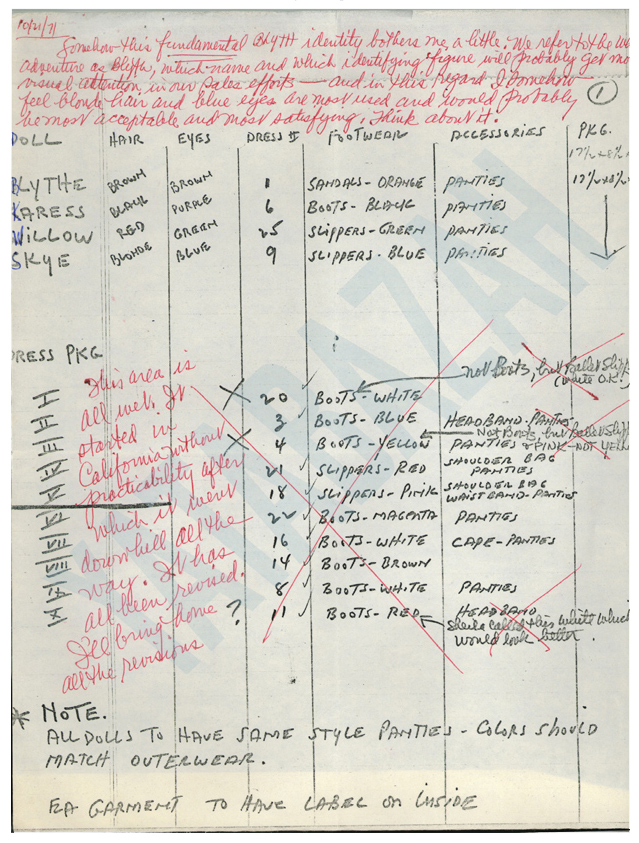 10/21/71
Somehow this fundamental BLYTH identity bothers me a little. We refer to the
adventure as Blyth, which name and which identifying figure will probably get mo
visual attention in our sales efforts — and in this regard I somehow
feel blonde hair and blue eyes are most used and would probably
be most acceptable and most satisfying. Think about it.
1
DOLL HAIR EYES DRESS # FOOTWEAR ACCESSORIES PKG.
BLYTHE BROWN BROWN 1 SANDALS-ORANGE PANTIES
KARESS BLACK PURPLE 6 BOOTS-BLACK PANTIES
WILLOW RED GREEN 25 SLIPPERS-GREEN PANTIES
SKYE BLONDE BLUE 9 SLIPPERS-BLUE PANTIES
DRESS PKG
This area is
all wet. It
started in
California without
practicability after
which it went
downhill all the
way. It has
all been revised.
I'll bring home
all the revisions
X 20 ✓ BOOTS-WHITE
not Boots, but Ballet Slipp
(white O.K.)
3 ✓ BOOTS-BLUE HEADBAND-PANTIES
X 4 ✓ BOOTS-YELLOW PANTIES
Not Boots, but Ballet Slipp
PINK-NOT YELL
21 ✓ SLIPPERS-RED SHOULDER BAG
PANTIES
18 ✓ SLIPPERS-PINK SHOULDER BAG
WAISTBAND-PANTIES
22 ✓ BOOTS-MAGENTA PANTIES
16 ✓ BOOTS-WHITE CAPE-PANTIES
14 ✓ BOOTS-BROWN
8 ✓ BOOTS-WHITE PANTIES
? 11 ✓ BOOTS-RED HEADBAND
Sheila called this white which
would look better.
* NOTE.
ALL DOLLS TO HAVE SAME STYLE PANTIES - COLORS SHOULD
MATCH OUTERWEAR.
EA GARMENT TO HAVE LABEL ON INSIDE